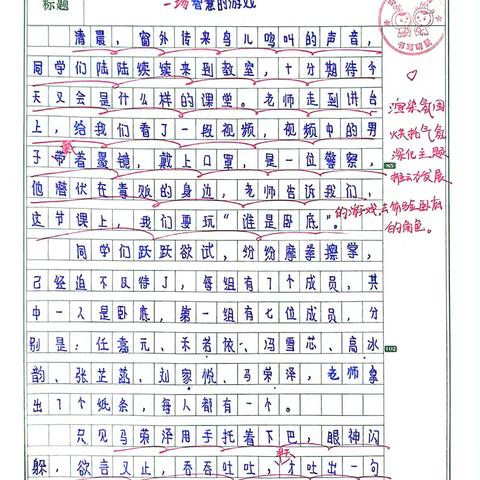 标题
一场智慧的游戏
清晨，窗外传来鸟儿鸣叫的声音，
同学们陆陆续续来到教室，十分期待今
天又会是什么样的课堂。老师走到讲台
上，给我们看了一段视频，视频中的男
子带着墨镜，戴上口罩，是一位警察，
戴
他潜伏在毒贩的身边，老师告诉我们，
这节课上，我们要玩“谁是卧底”。
的游戏，去体验卧底
的角色。
渲染氛围
烘托气氛
深化主题
推动发展
同学们跃跃欲试，纷纷摩拳擦掌，
己经迫不及待了，每组有7个成员，其
中一人是卧底，第一组有七位成员，分
别是：任嘉元、禾若依、冯雪芯、高冰
韵、张芷菡、刘家悦、马荣泽，老师拿
出7个纸条，每人都有一个。
只见马荣泽用手托着下巴，眼神闪
躲，欲言又止，吞吞吐吐，才吐出一句